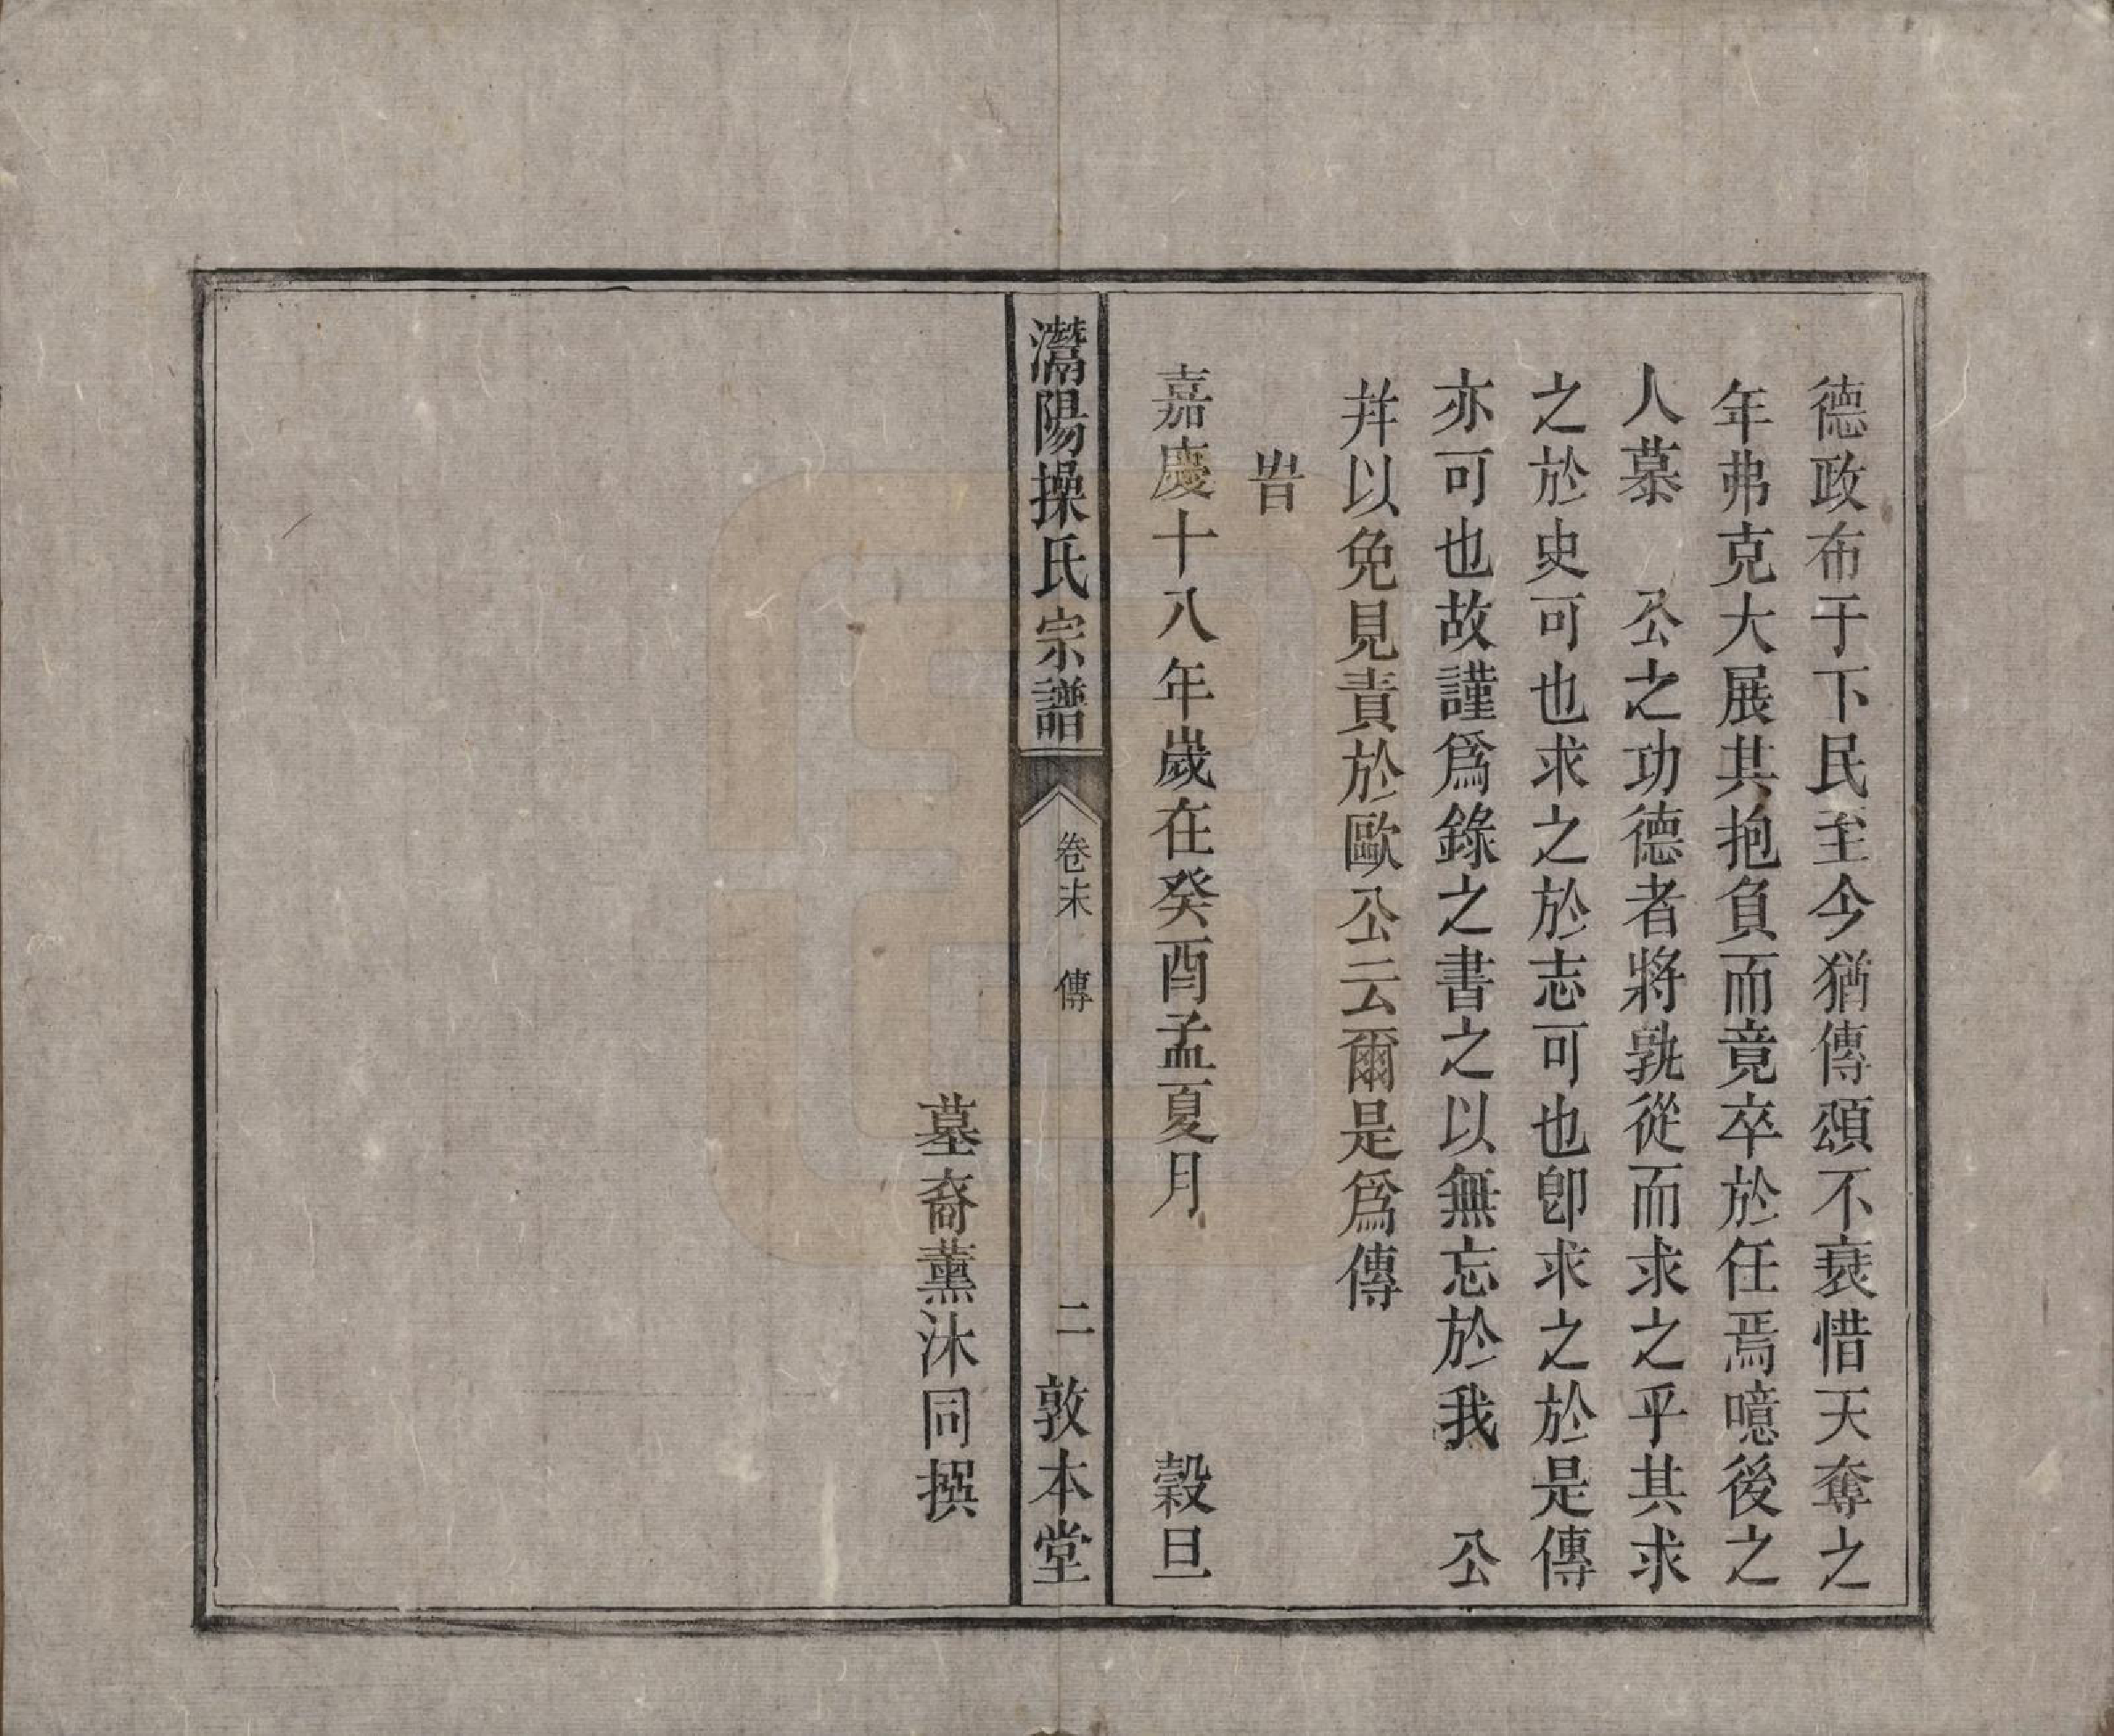 德政布于下民至今猶傳頌不衰惜天奪之
年弗克大展其抱負而竟卒於任焉噫後之
人慕　公之功德者將孰從而求之乎其求
之於史可也求之於志可也卽求之於是傳
亦可也故謹爲錄之書之以無忘於我　公
幷以免見責於歐公云爾是爲傳
旹
嘉慶十八年歲在癸酉孟夏月　穀旦
灊陽操氏宗譜
卷末　傳
二
敦本堂
墓裔薰沐同撰